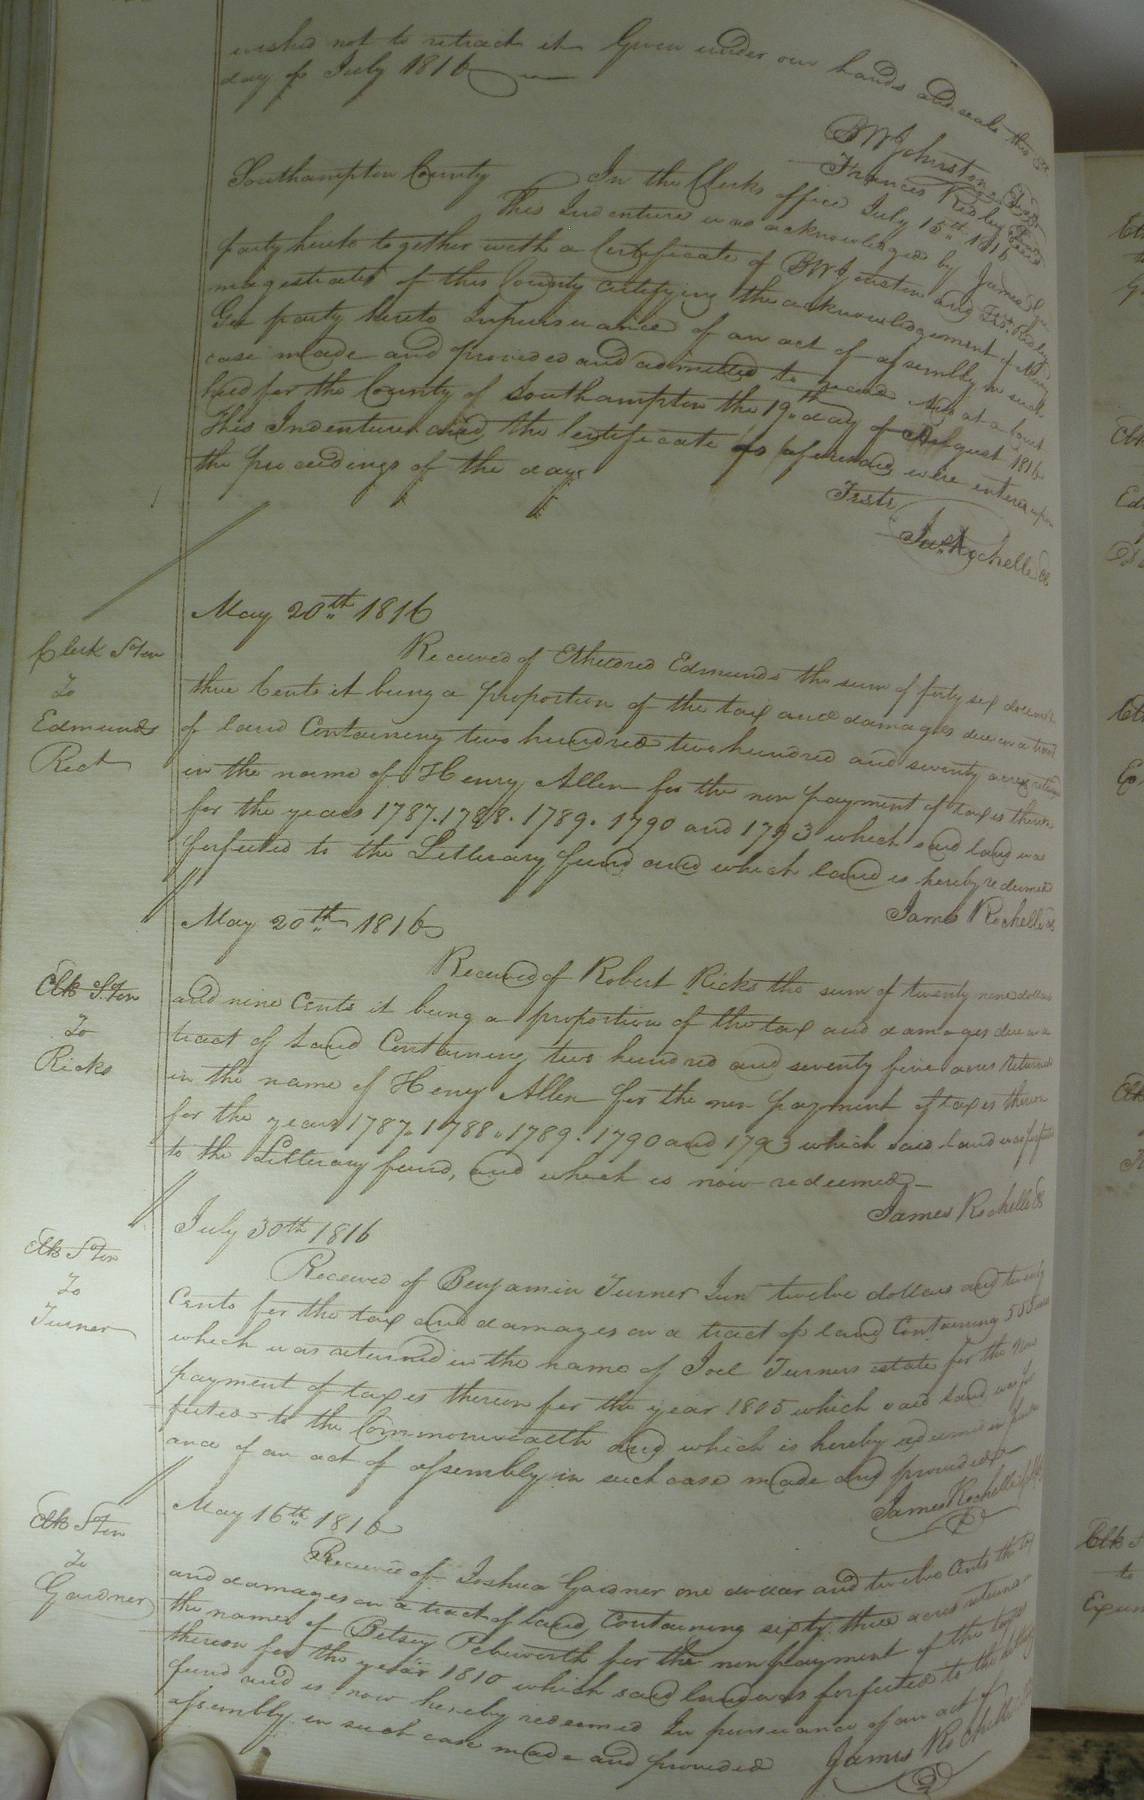 wished not to retract it Given under our hands and seals this
day of July 1816
BW Johnston Seal
Frances Ridley Seal
Southampton County In the Clerks office July 15th 1816
This Indenture was acknowledged by James
party hereto together with a Certificate of BW Jonston and Frs. Ridley
magestrates of this County certifying the acknowledgement of
party hereto Inpursuance of an act of assembly in such
case made and provided and admitted to record And at a Court
held for the County of Southampton the 19th day of August 1816
This Indenture and the Certificate as aforesaid were entered upon
the proceedings of the day
Teste
Jas Rochelle CS
May 20th 1816
Clerk S.ton
To
Edmunds
Rect
Received of Etheldred Edmunds the sum of forty six dollars &
three Cents it being a proportion of the tax and damages due on a tract
of land Containing two hundred two hundred and seventy acres returned
in the name of Henry Allen for the non payment of taxes thereon
for the years 1787. 1788. 1789. 1790 and 1793 which said land was
forfeited to the Litterary fund and which land is hereby redeemed
James Rochelle CS
May 20th 1816
Clk S.ton
To
Ricks
Received of Robert Ricks the sum of twenty nine dollars
and nine Cents it being a proportion of the tax and damages due on a
tract of Land Containing two hundred and seventy five acres returned
in the name of Henry Allen for the non payment of taxes thereon
for the years 1787. 1788. 1789. 1790 and 1793 which said land was forfeited
to the Litterary fund, and which is now redeemed
James Rochelle CS
July 30th 1816
Clk S.ton
To
Turner
Received of Benjamin Turner Jun twelve dollars and twenty
Cents for the tax and damages on a tract of land Containing 555 acres
which was returned in the name of Joel Turners estate for the Non
payment of taxes thereon for the year 1805 which said land was for
feited to the Commonwealth and which is hereby redeemed in pursu
ance of an act of assembly in such case made and provided
James Rochelle
May 16th 1816
Clk S.ton
To
Gardner
Received of Joshua Gardner one dollar and twelve Cents the tax
and damages on a tract of land Containing sixty three acres returned in
the name of Betsey Pebworth for the non payment of the taxes
thereon for the year 1810 which said land was forfeited to the
fund and is now hereby redeemed In pursuance of an act of
assembly in such case made and provided
James Rochelle